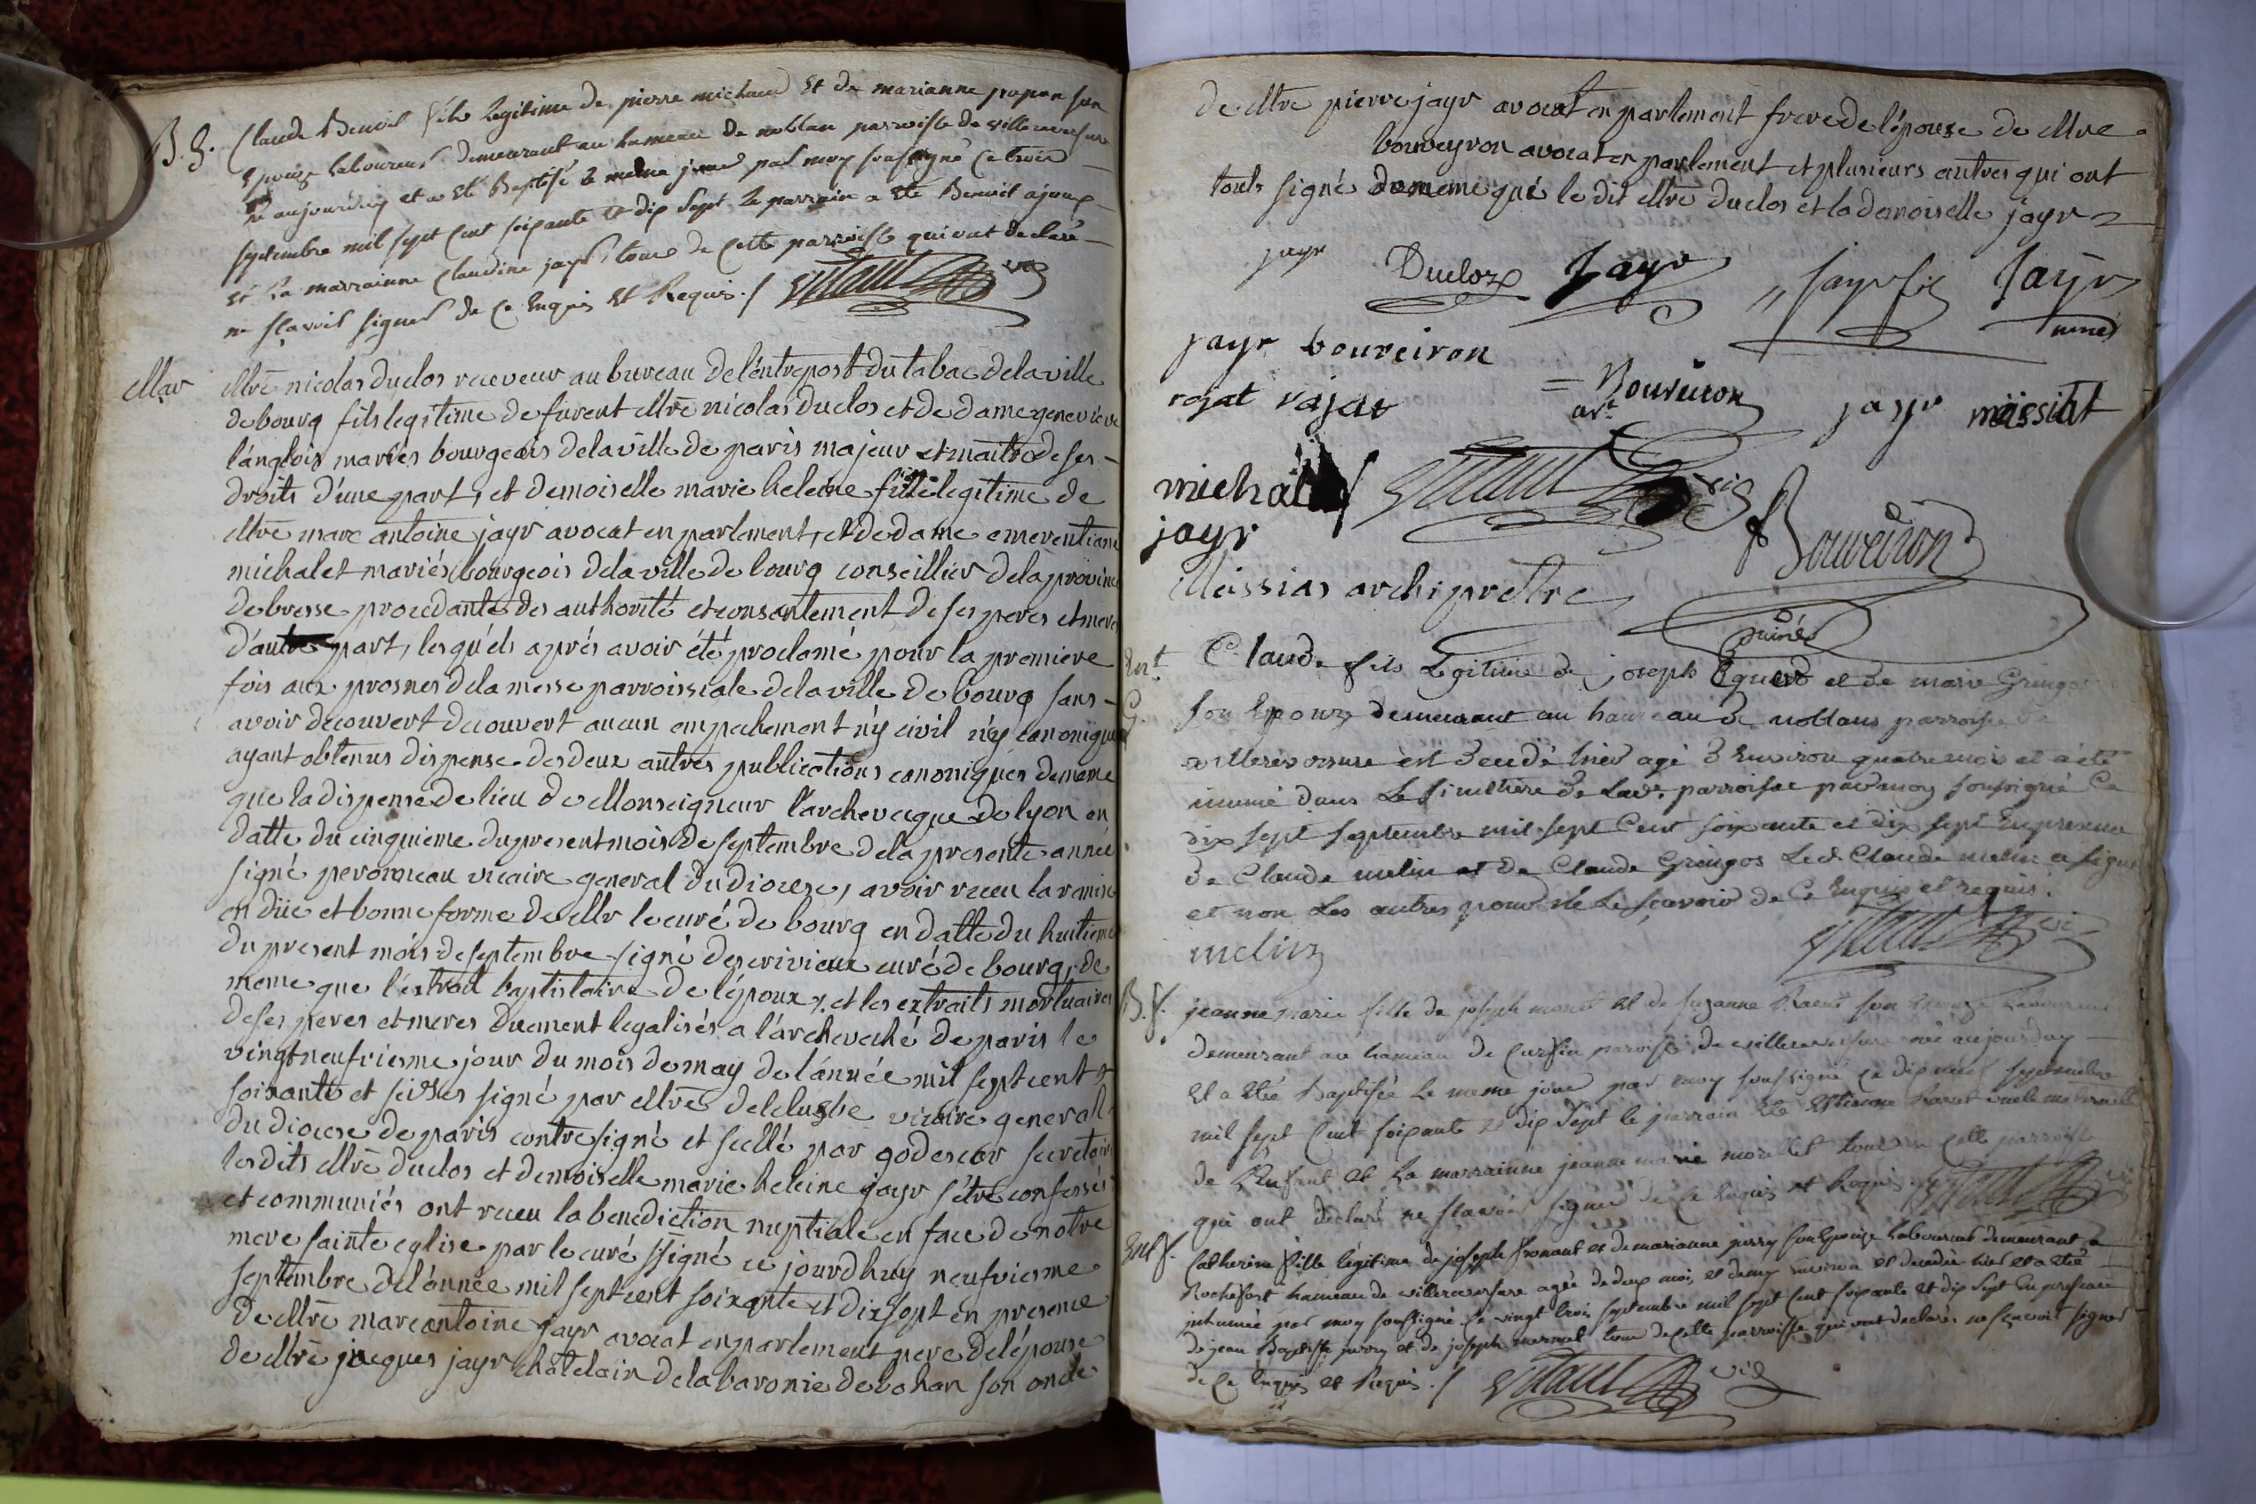 B. g. Claude Benoit fils legitime de pierre michaud et de marianne papon son
epouse laboureur demeurant au hameau de noblan parroisse de villereversure
né aujourdhuy et a eté Baptisé le meme jour par moy soussigné ce trois
septembre mil sept cent soixante et dix sept le parrain a eté Benoit
et la marrainne Claudine jayr tous de cette parroisse qui ont declaré
ne sçavoir signer de ce Enquis et Requis ./.
Mar Mtre nicolas duclos receveur au bureau de l'éntrepost du tabac de la ville
de bourg fils legitime de furent Mtre nicolas duclos et de dame genevieve
lánglois mariés bourgeois de la ville de paris majeur et maitre de ses
droits d'une part, et demoiselle marie heleine fille legitime de
Mtre marc antoine jayr avocat en parlement, et de dame emerentiane
michalet mariés bourgeois de la ville de bourg conseillier de la province
de bresse procedante des authorité et consentement de ses peres et mere
d'autre part, lesquéls aprés avoir été proclamé pour la premiere
fois aux prosnes de la messe parroissiale de la ville de bourg sans
avoir decouvert decouvert aucun empechement n'y civil n'y canonique
ayant obtenus dispense des deux autres publications canoniques de meme
que la dispense de lieu de Monseigneur l'archeveque de lyon en
datte du cinquieme du present mois de septembre de la presente année
signé peronneau vicaire general du diocese, avoir receu la remise
en düe et bonne forme de Mr le curé de bourg en datte du huitieme
du present mois de septembre signé descrivieux curé de bourg, de
meme que l'éxtrait baptistaire de l'époux, et les extraits mortuaires
de ses peres et meres duement legalisés a l'archeveché de paris le
vingt neufviesme jour du mois de may de l'ánnée mil sept cent
soixante et seizes signé par Mtre delclusbe vicaire general
du diocese de paris contresigné et scellé par godescar secretaire
les dits Mtre duclos et demoiselle marie heleine jayr s'étre confessés
et communiés ont receu la benediction nuptiale en face de notre
mere sainte eglise par le curé ssigné ce jourdhuy neufviesme
septembre de l'année mil sept cent soixante et dix sept en presence
de Mtre marc antoine jayr avocat en parlement pere de l'épouse
de Mtre jacques jayr chatelain de la baronie de bohan son oncle
de Mtre pierre jayr avocat en parlement frere de l'épouse de Mtre
bouveyron avocat en parlement et plusieurs autres qui ont
touts signé de meme qué le dit Mtre duclos et la demoiselle jayr
jayr Duclos Jayr Jayr fils Jayr
jayr bouveiron
rojat rajat = Bouveiron avt jayr missiat
michalet
jayr Bouveiron
Meissias archiprestre
puiné
Ent. G. Claude fils Legitime de joseph et de marie Gringos
son Epouze demeurant au hameau de noblans parroisse de
villereversure est decedé hier agé d Environ quatre mois et a été
inumé dans Le simetiere de Lad. parroisse par moy soussigné Ce
dix sept septembre mil sept Cent soixante et dix sept En presence
de Claude melin et de Claude Gringos Led. Claude melin a signé
et non Les autres pour ne Le sçavoir de Ce Enquis et requis.
melin
B. f. jeanne marie fille de joseph et de suzanne son epouze laboureur
demeurant au hameau de Cursin parroisse de villereversure née aujourdhuy
et a etée Baptisée Le meme jour par moy soussigné ce dix neuf septembre
mil sept Cent soixante et dix sept le parrain Etienne oncle maternelle
de L'Enfant et La marrainne jeanne marie tous de cette parroisse
qui ont declaré ne sçavoir signer de ce Enquis et Requis
Ent f. Catherine fille légitime de joseph et de marianne son Epouze laboureur demeurant a
Rochefort hameau de villereversure agée de deux mois et demy environ est decedée hier et a etée
inhumée par moy soussigné ce vingt trois septembre mil sept cent soixante et dix sept En presence
de jean Baptiste et de joseph tous de cette parroisse qui ont declarés ne sçavoir signer
de ce enquis et Requis ./.